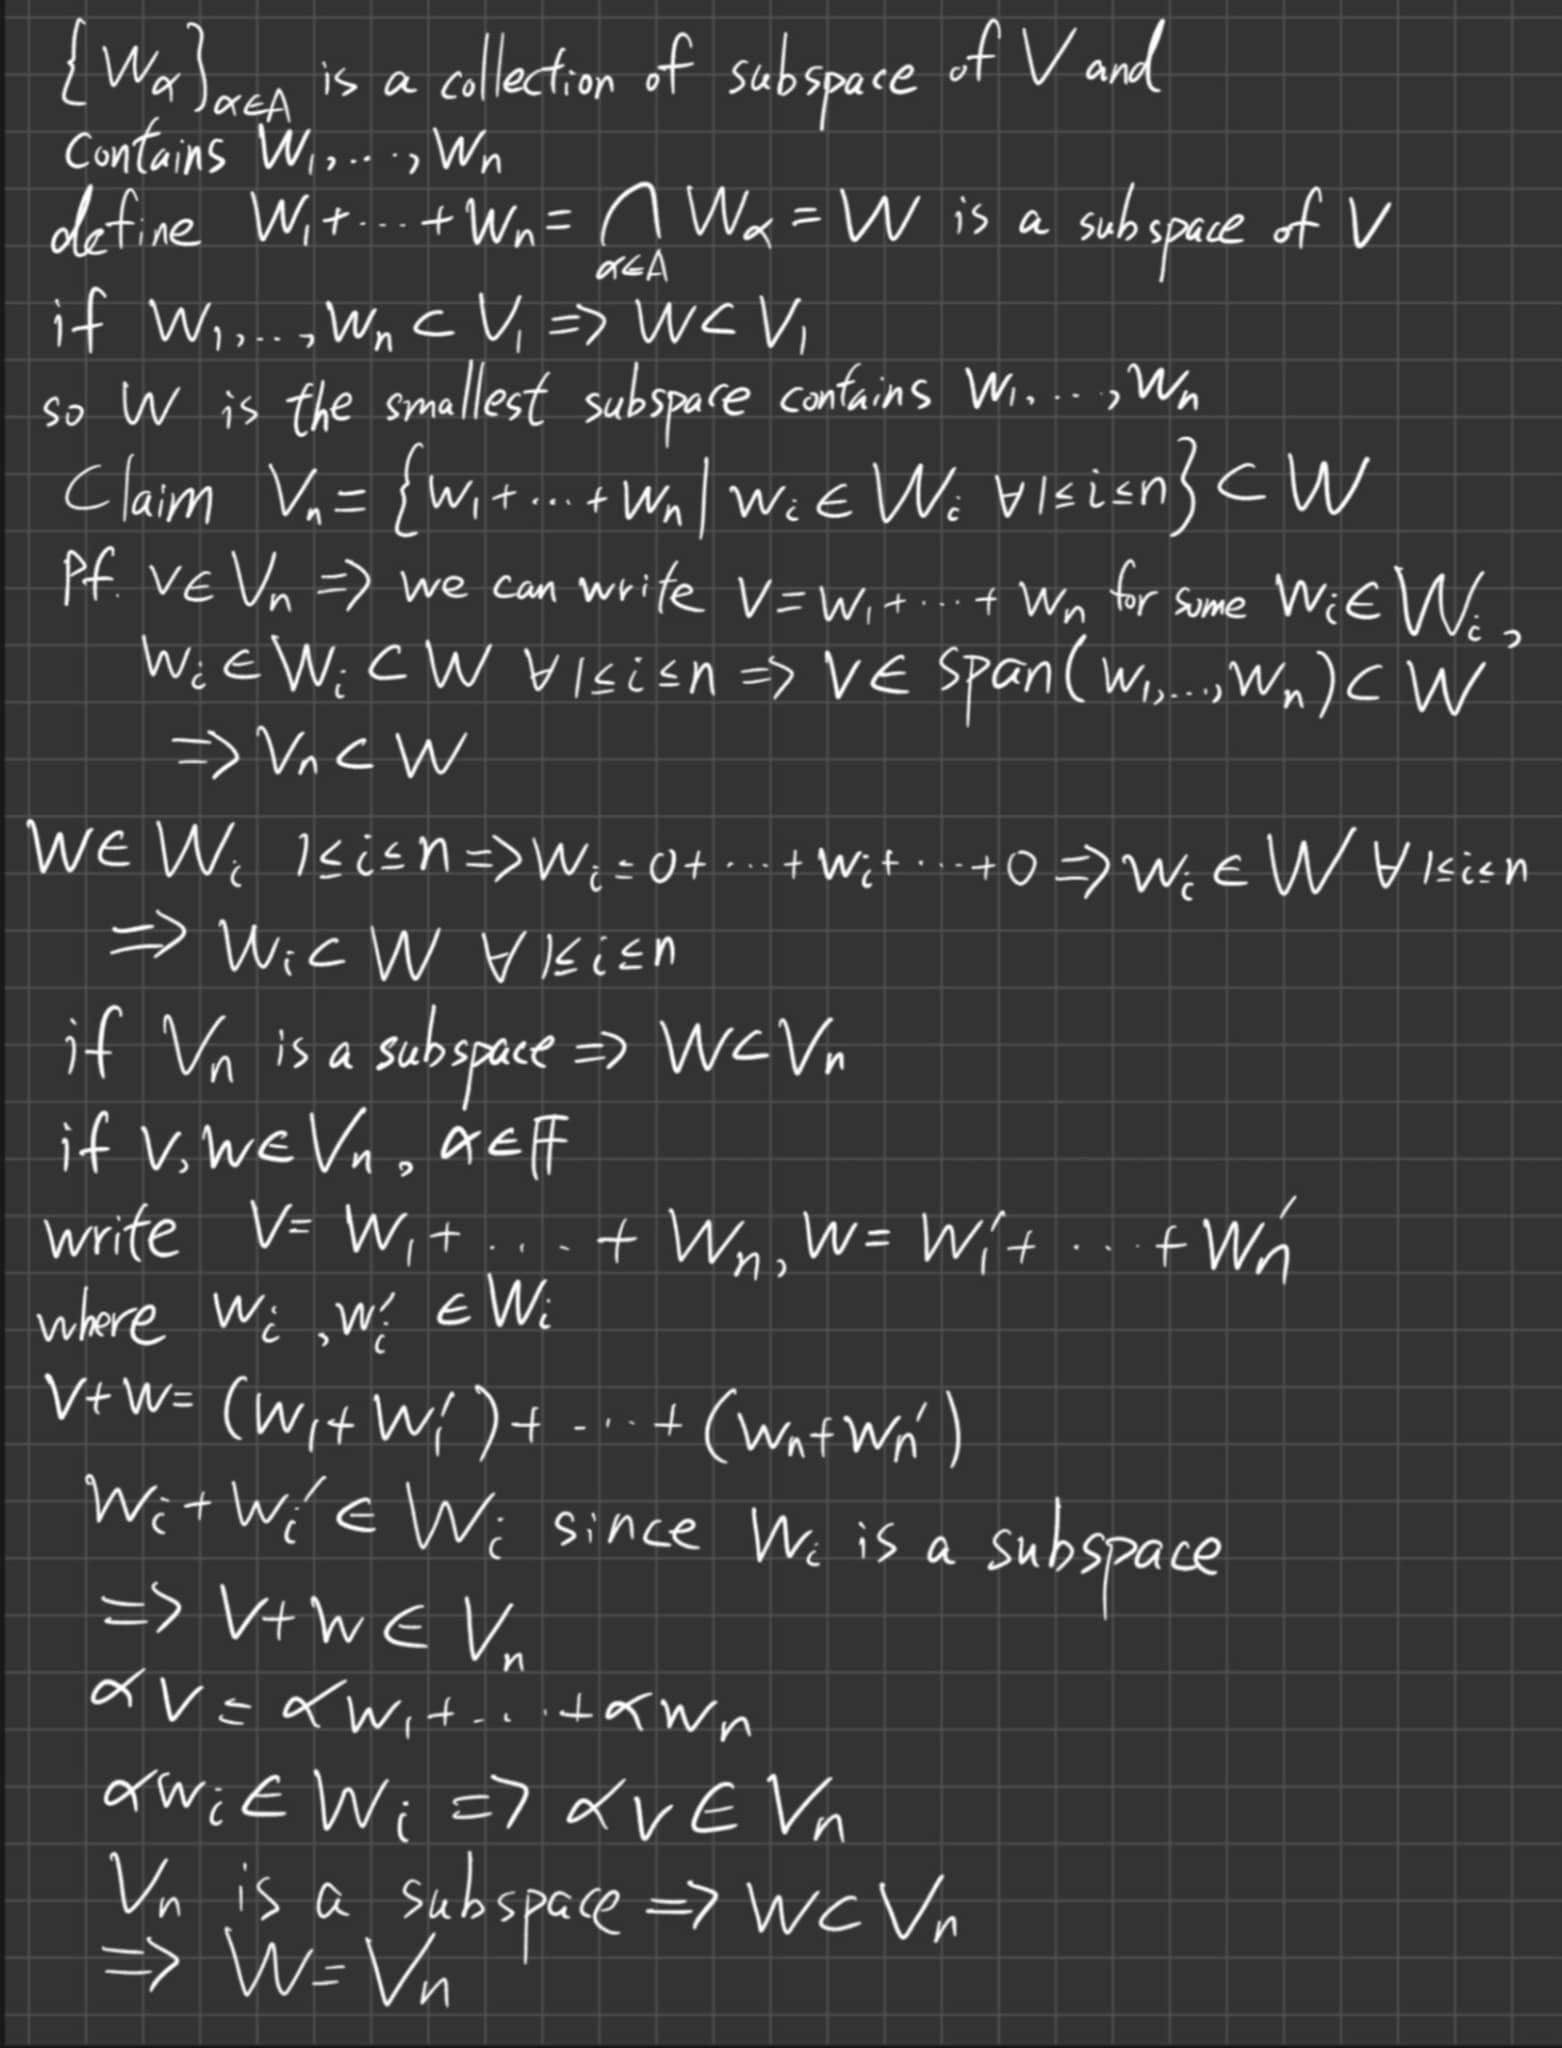 {W_α}_{α∈A} is a collection of subspace of V and
contains W₁,...,Wₙ
define W₁+...+Wₙ = ⋂_{α∈A} W_α = W is a subspace of V
if W₁,...,Wₙ ⊂ V₁ => W ⊂ V₁
so W is the smallest subspace contains W₁,...,Wₙ
Claim Vₙ = {w₁+...+wₙ | wᵢ ∈ Wᵢ ∀ 1≤i≤n} ⊂ W
Pf. v ∈ Vₙ => we can write v = w₁+...+wₙ for some wᵢ ∈ Wᵢ,
wᵢ ∈ Wᵢ ⊂ W ∀ 1≤i≤n => v ∈ span(w₁,...,wₙ) ⊂ W
=> Vₙ ⊂ W
w ∈ Wᵢ 1≤i≤n => wᵢ = 0+...+wᵢ+...+0 => wᵢ ∈ W ∀ 1≤i≤n
=> Wᵢ ⊂ W ∀ 1≤i≤n
if Vₙ is a subspace => W ⊂ Vₙ
if v, w ∈ Vₙ, α ∈ 𝔽
write v = w₁+....+wₙ, w = w₁'+...+wₙ'
where wᵢ, wᵢ' ∈ Wᵢ
v+w = (w₁+w₁')+...+(wₙ+wₙ')
wᵢ+wᵢ' ∈ Wᵢ since Wᵢ is a subspace
=> v+w ∈ Vₙ
αv = αw₁+...+αwₙ
αwᵢ ∈ Wᵢ => αv ∈ Vₙ
Vₙ is a subspace => W ⊂ Vₙ
=> W = Vₙ